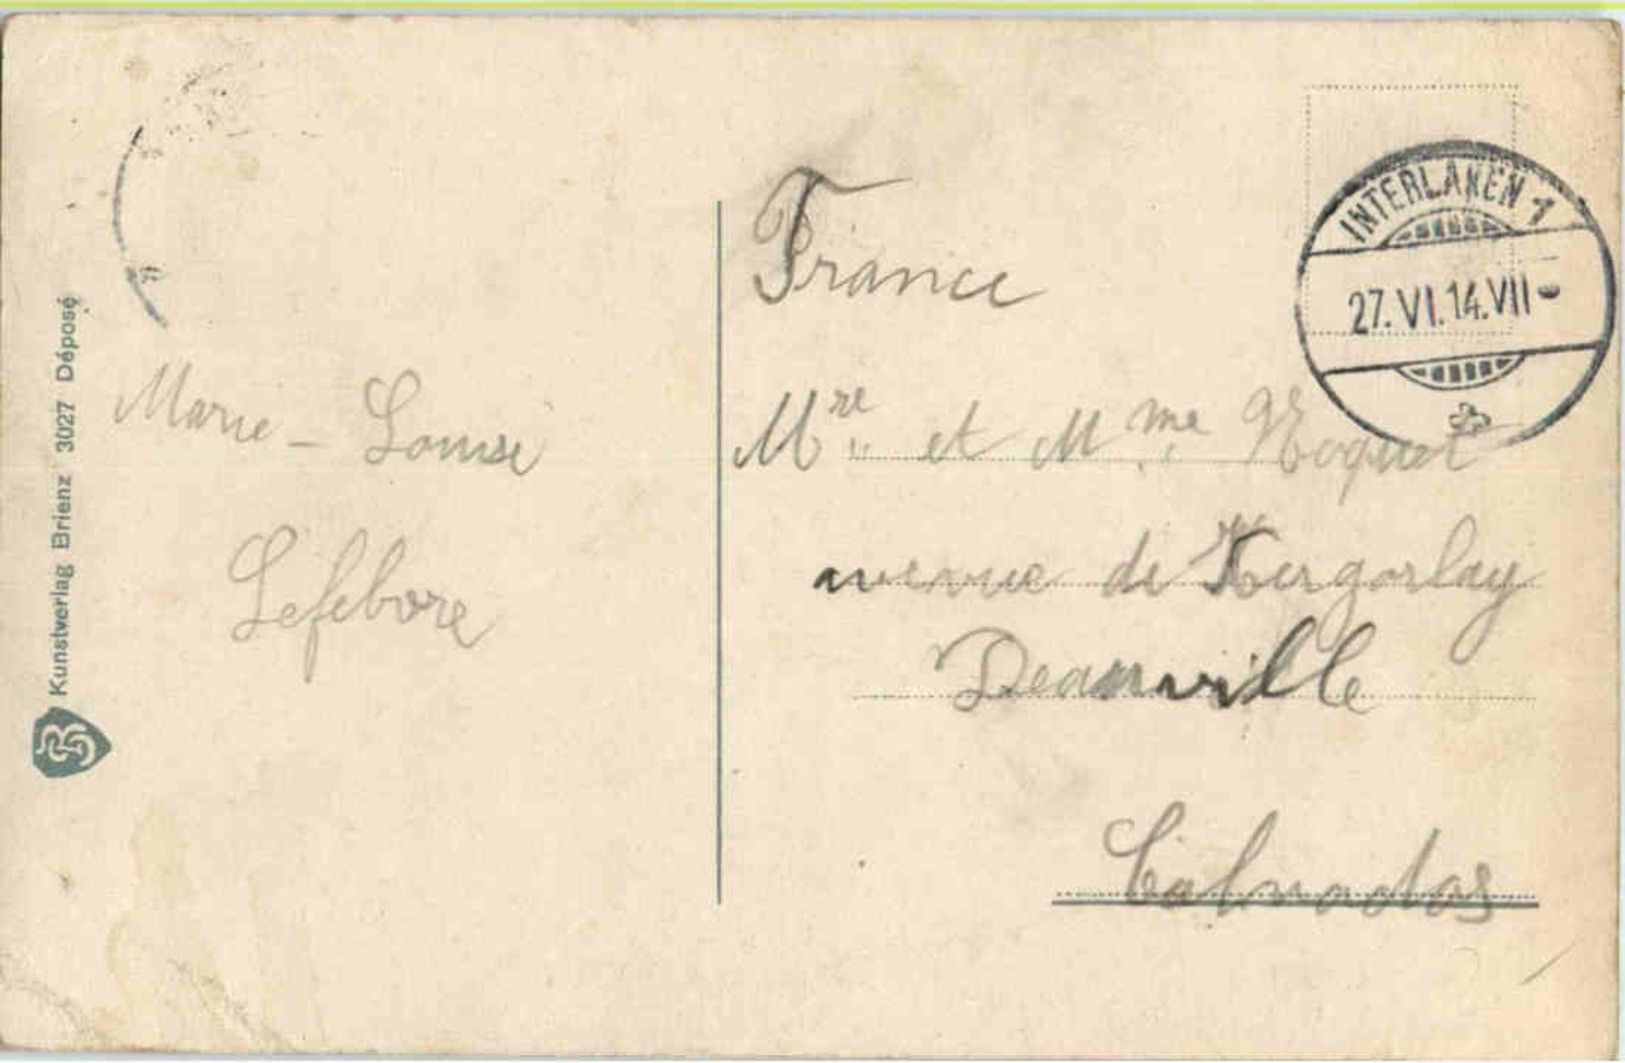 INTERLAKEN 1
27.VI.14.VII
France
Mre et Mme
avenue de Kergorlay
Deauville
Calvados
Marie-Louise
Lefebvre
Kunstverlag Brienz 3027 Déposé